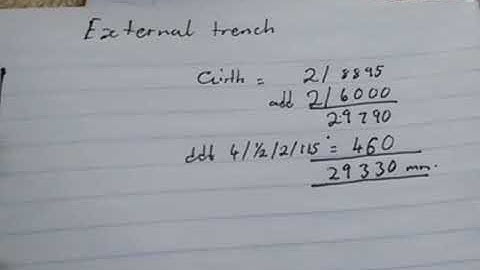 External trench
Girth = 2/8895
add 2/6000
29790
ddt 4/½/2/115 = 460
29330 mm.